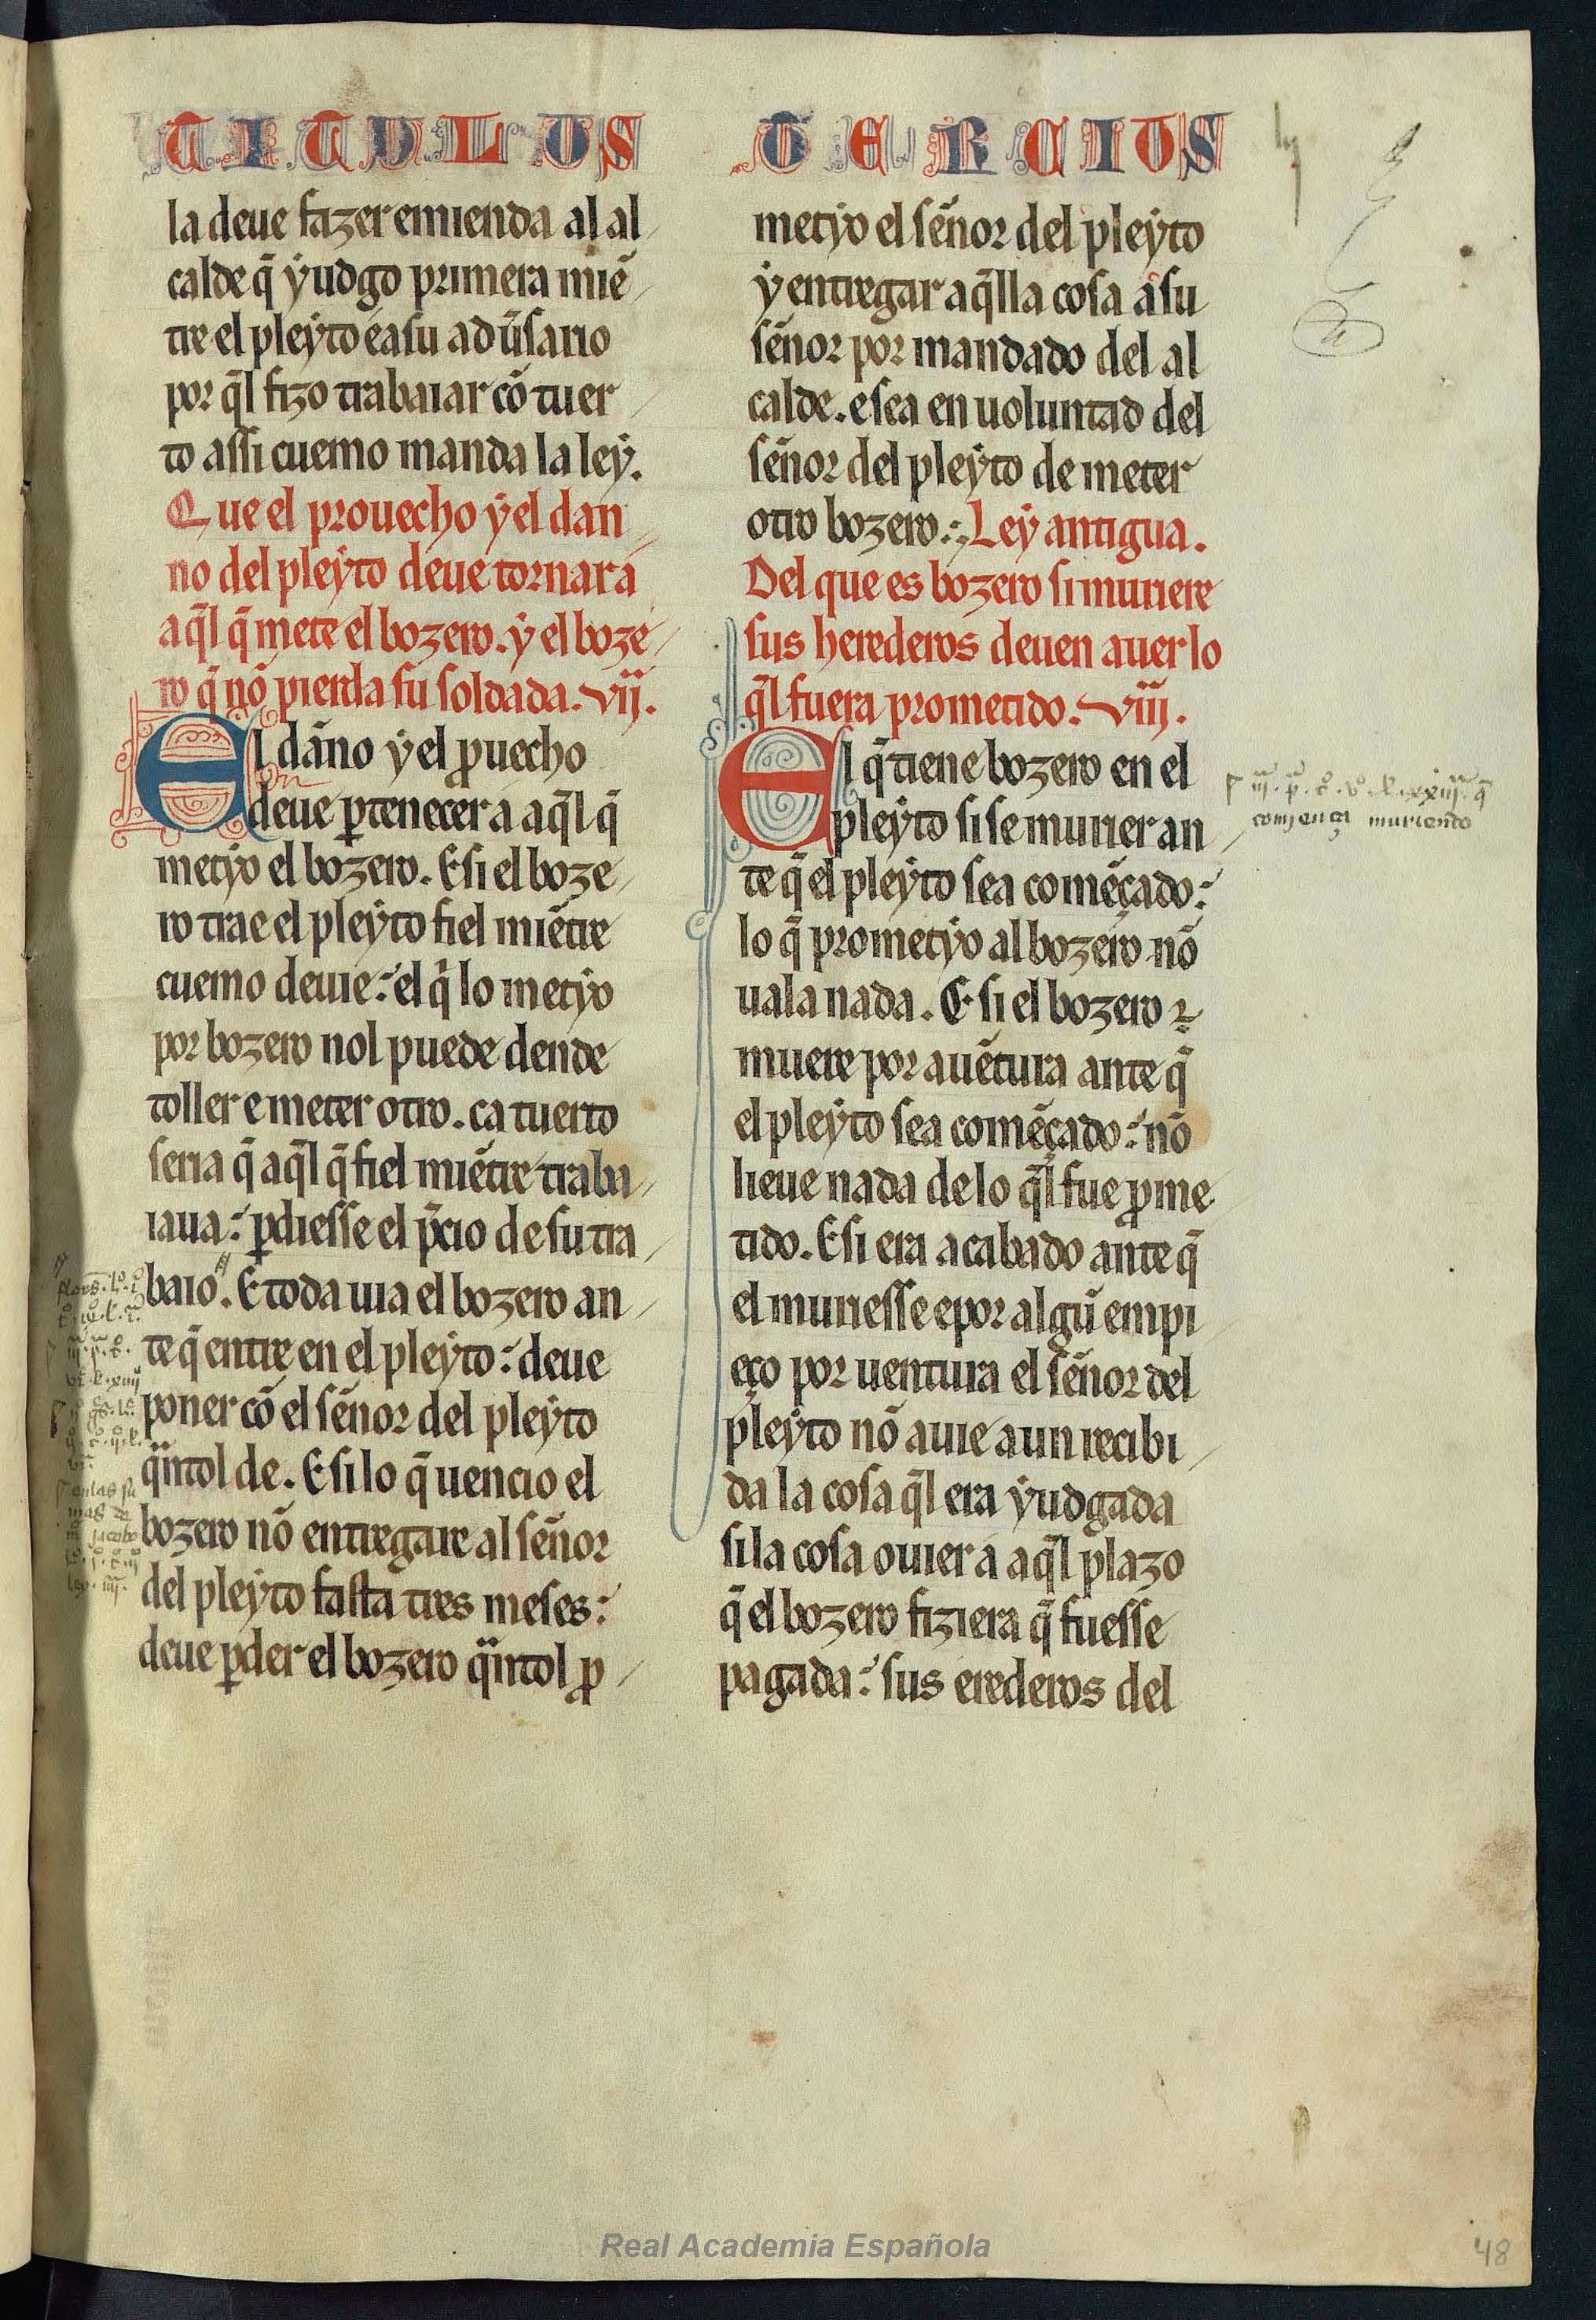 TITULUS TERCIUS
la deue fazer emienda al al
calde q̃ ẏudgo primera miẽ
tre el pleẏto e a su adũsario
por q̃l fizo trabaiar cõ tuer
to assi cuemo manda la leẏ.
Que el prouecho ẏ el dan
no del pleẏto deue tornar a
aq̃l q̃ mete el bozero. ẏ el boze
ro q̃ nõ pierda su soldada. vij.
El dãno ẏ el ꝓuecho
deue ꝑtenecer a aq̃l q̃
metẏo el bozero. E si el boze
ro trae el pleẏto fiel miẽtre
cuemo deuie: el q̃ lo metẏo
por bozero nol puede dende
toller e meter otro. ca tuerto
seria q̃ aq̃l q̃ fiel miẽtre traba
iaua: ꝑdiesse el p̃cio de su tra
baio. E toda uia el bozero an
te q̃ entre en el pleẏto: deue
poner cõ el sẽnor del pleẏto
q̃ntol de. E si lo q̃ uencio el
bozero nõ entregare al sẽnor
del pleẏto fasta tres meses:
deue ꝑder el bozero q̃ntol ꝓ
metẏo el sẽnor del pleẏto
ẏ entregar aq̃lla cosa a su
sẽnor por mandado del al
calde. e sea en uoluntad del
sẽnor del pleẏto de meter
otro bozero. Leẏ antigua.
Del que es bozero si muriere
sus herederos deuen auer lo
q̃l fuera prometido. viij.
El q̃ tiene bozero en el
pleẏto si se murier an
te q̃ el pleẏto sea comẽçado:
lo q̃ prometẏo al bozero nõ
uala nada. E si el bozero
muere por auẽtura ante q̃
el pleẏto sea comẽçado: nõ
lieue nada de lo q̃l fue ꝓme
tido. E si era acabado ante q̃
el muriesse e por algũ empi
eço por uentura el sẽnor del
pleẏto nõ auie aun recibi
da la cosa q̃l era ẏudgada
si la cosa ouier a aq̃l plazo
q̃ el bozero fiziera q̃ fuesse
pagada: sus erederos del
comiença muriendo
Real Academia Española
48